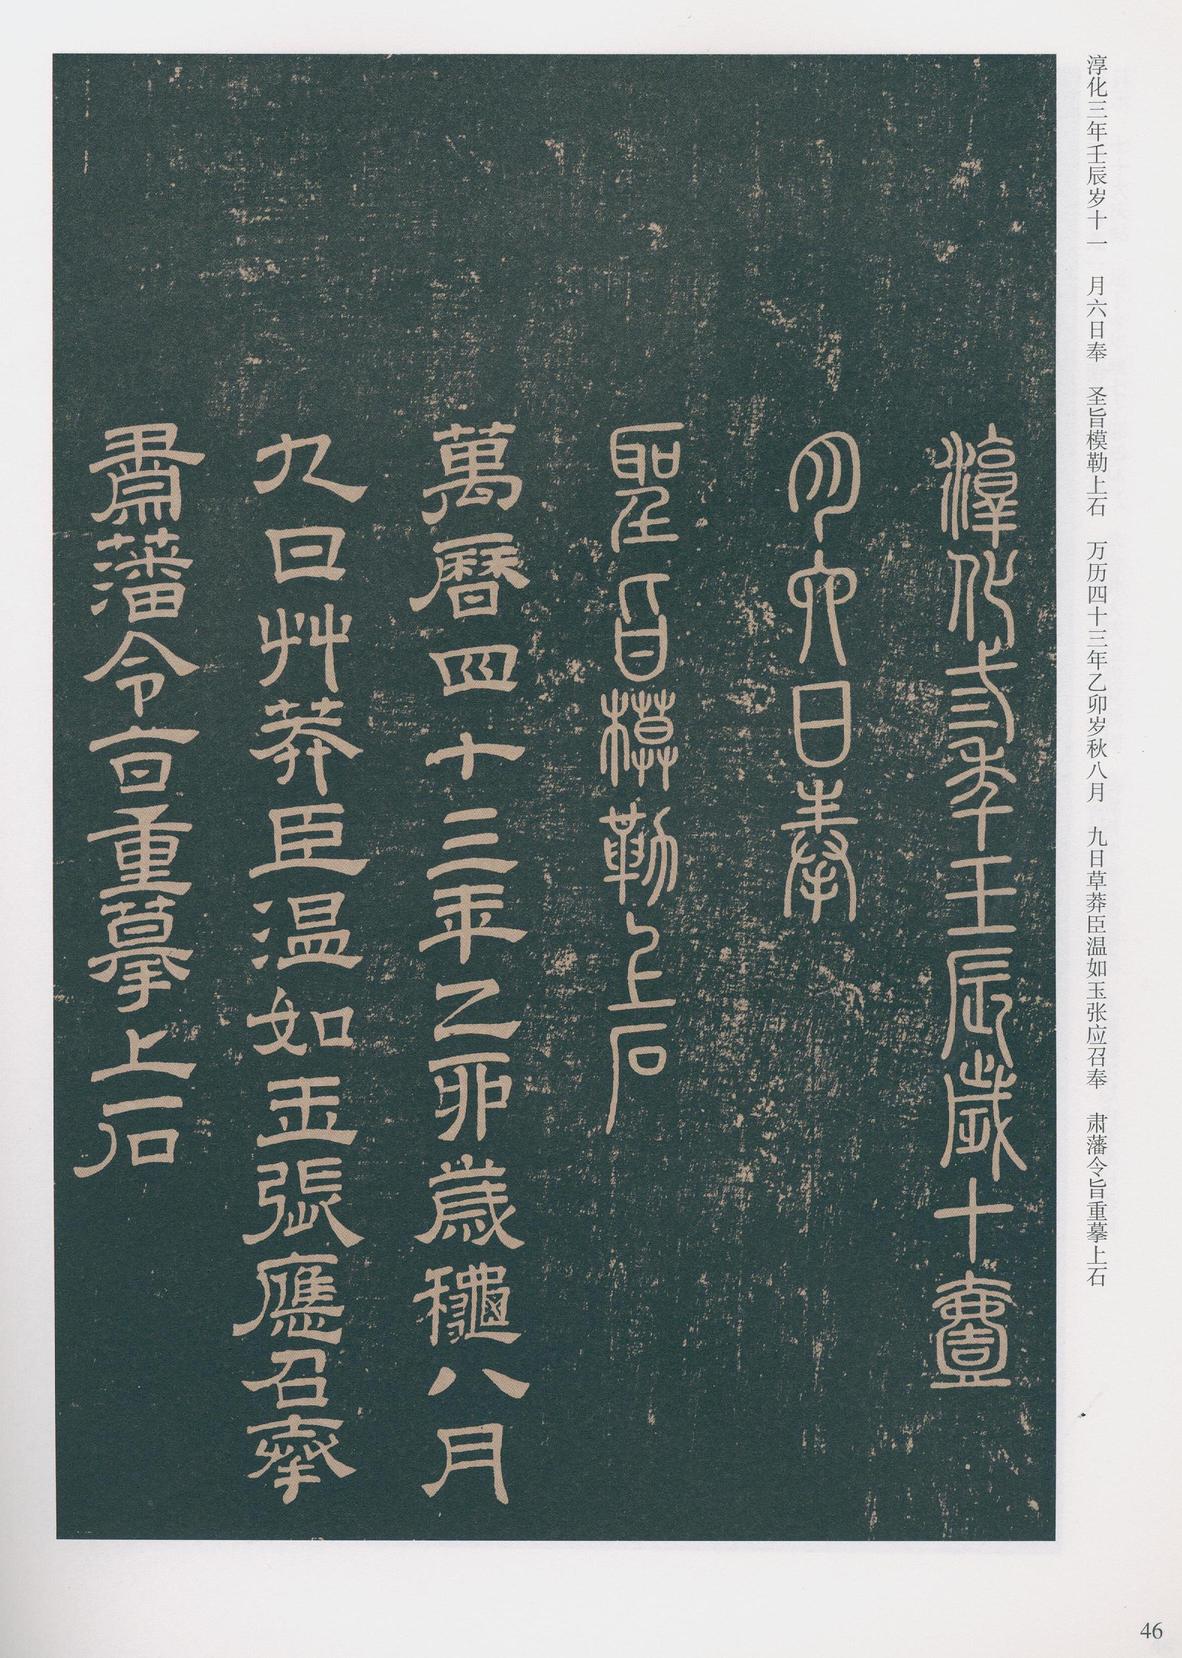 淳化三年壬辰岁十一　月六日奉　圣旨模勒上石　万历四十三年乙卯岁秋八月　九日草莽臣温如玉张应召奉　肃藩令旨重摹上石
淳化三年壬辰歲十壹
月六日奉
聖旨模勒上石
萬曆四十三年乙卯歲龝八月
九日艸莽臣溫如玉張應召奉
肅藩令旨重摹上石
46